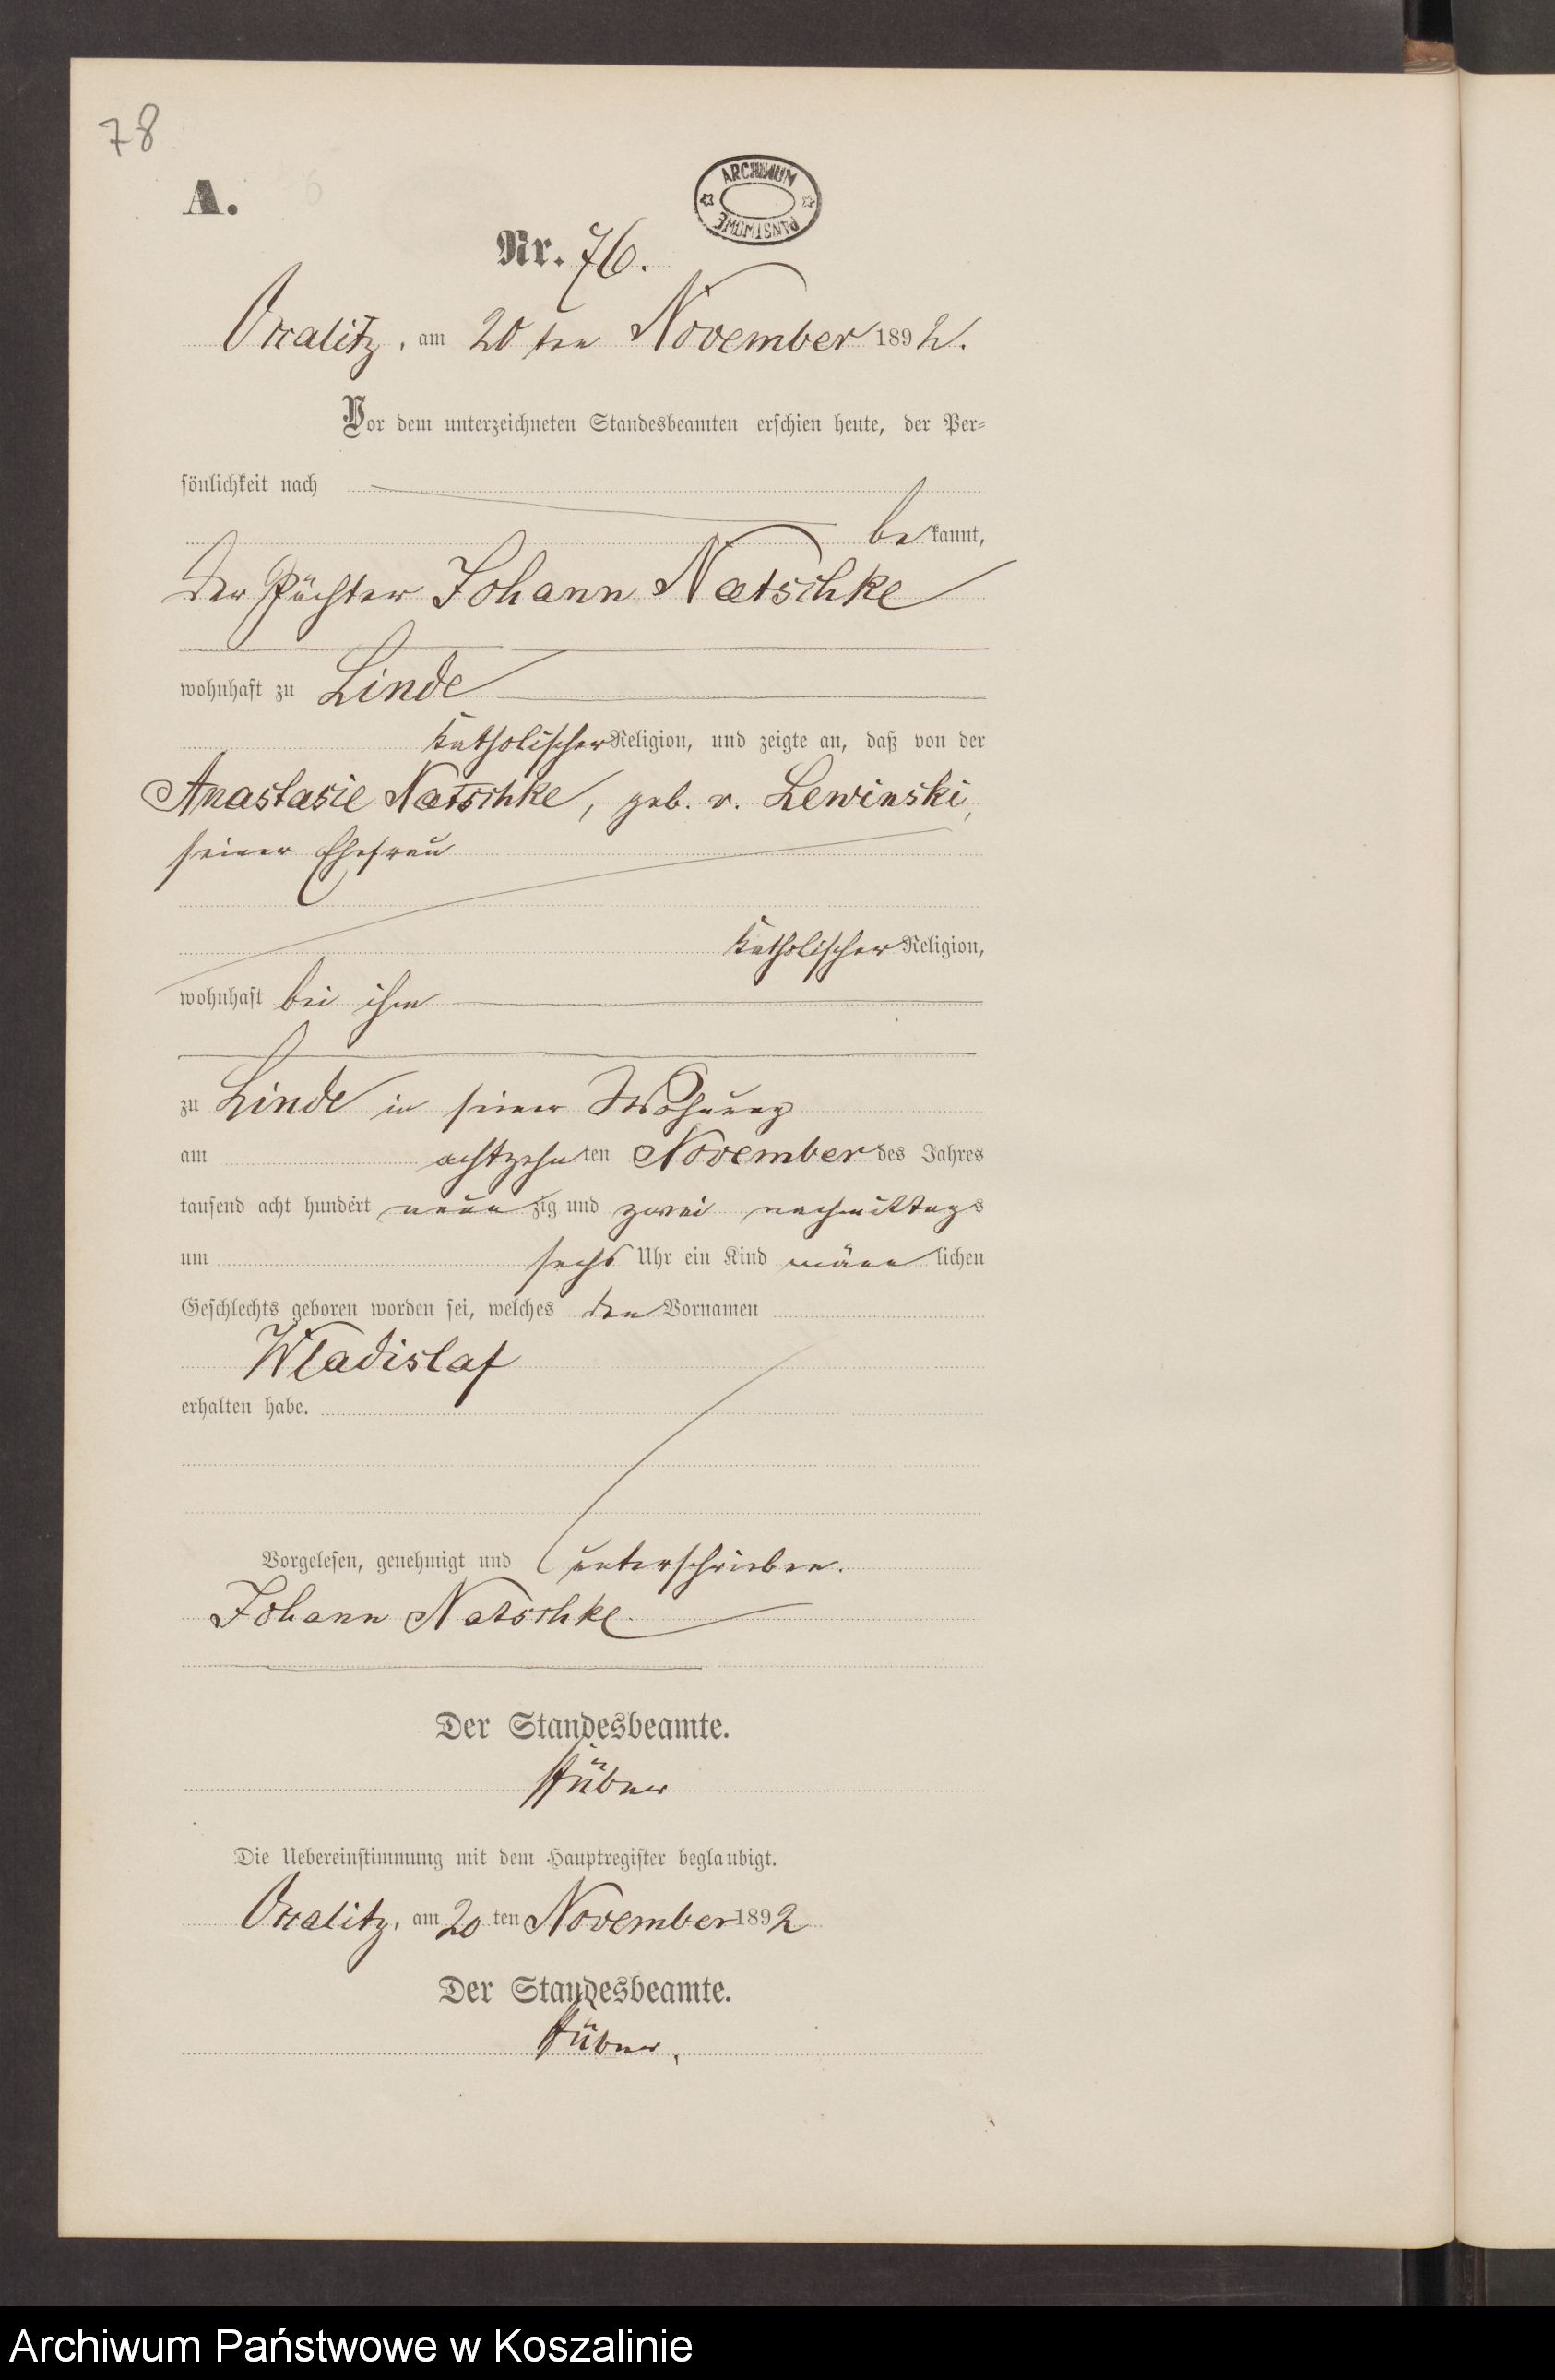 78
A.
ARCHIWUM
PAŃSTWOWE
Nr. 76.
Oxalitz, am 20ten November 1892.
Vor dem unterzeichneten Standesbeamten erschien heute, der Per-
sönlichkeit nach
bekannt,
der Pächter Johann Natschke
wohnhaft zu Linde
katholischer Religion, und zeigte an, daß von der
Anastasie Natschke, geb. v. Lewinski,
seiner Ehefrau
katholischer Religion,
wohnhaft bei ihm
zu Linde in seiner Wohnung
am achtzehnten November des Jahres
tausend acht hundert neunzig und zwei nachmittags
um sechs Uhr ein Kind männlichen
Geschlechts geboren worden sei, welches den Vornamen
Wladislaf
erhalten habe.
Vorgelesen, genehmigt und unterschrieben.
Johann Natschke
Der Standesbeamte.
Hübner
Die Uebereinstimmung mit dem Hauptregister beglaubigt.
Oxalitz, am 20ten November 1892
Der Standesbeamte.
Hübner.
Archiwum Państwowe w Koszalinie